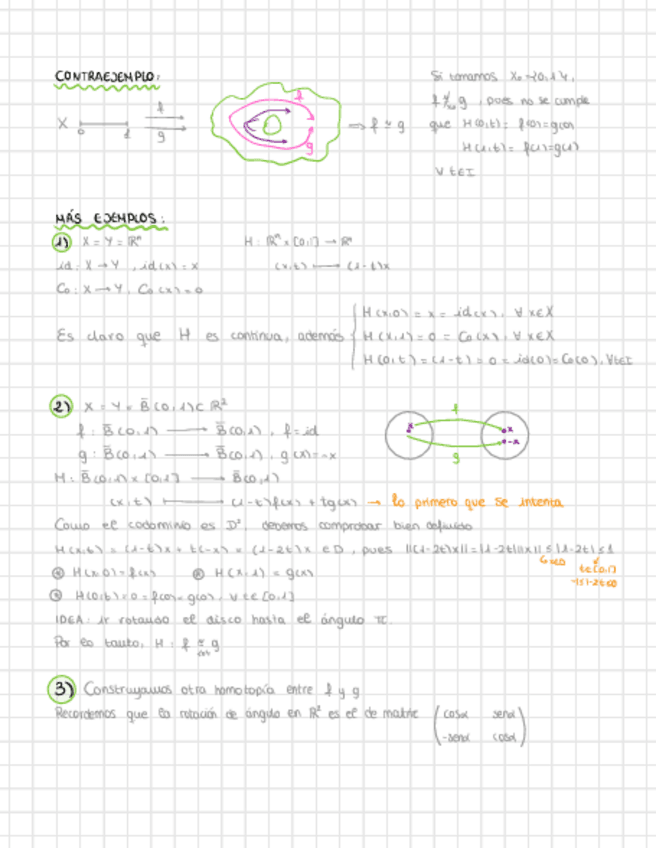 CONTRAEJEMPLO:
X 0 1 f g
f g
⇒ f ≃ g
Si tomamos X₀={0,1},
f ≄ g, pues no se cumple
que H(0,t)= f(0)=g(0)
H(1,t)= f(1)=g(1)
∀ t∈I
MÁS EJEMPLOS:
1) X = Y = ℝⁿ H: ℝⁿ × [0,1] → ℝⁿ
id: X → Y, id(x) = x (x,t) ⟼ (1-t)x
C₀: X → Y, C₀(x) = 0
H(x,0) = x = id(x), ∀ x∈X
Es claro que H es continua, además H(x,1) = 0 = C₀(x), ∀ x∈X
H(0,t) = (1-t) = 0 = id(0) = C₀(0), ∀t∈I
2) X = Y = B̄(0,1) ⊂ ℝ²
f: B̄(0,1) ⟶ B̄(0,1), f = id
g: B̄(0,1) ⟶ B̄(0,1), g(x) = -x
f
x x
-x
g
H: B̄(0,1) × [0,1] ⟶ B̄(0,1)
(x,t) ⟼ (1-t)f(x) + tg(x) → lo primero que se intenta
Como el codominio es D² debemos comprobar bien definido
H(x,t) = (1-t)x + t(-x) = (1-2t)x ∈ D, pues ||(1-2t)x|| = |1-2t| ||x|| ≤ |1-2t| ≤ 1
t∈[0,1]
* H(x,0) = f(x) * H(x,1) = g(x)
* H(0,t) = 0 = f(0) = g(0), ∀ t∈[0,1]
IDEA: ir rotando el disco hasta el ángulo π.
Por lo tanto, H: f ≃ g
3) Construyamos otra homotopía entre f y g
Recordemos que la rotación de ángulo en ℝ² es el de matriz
(cosα senα
-senα cosα)